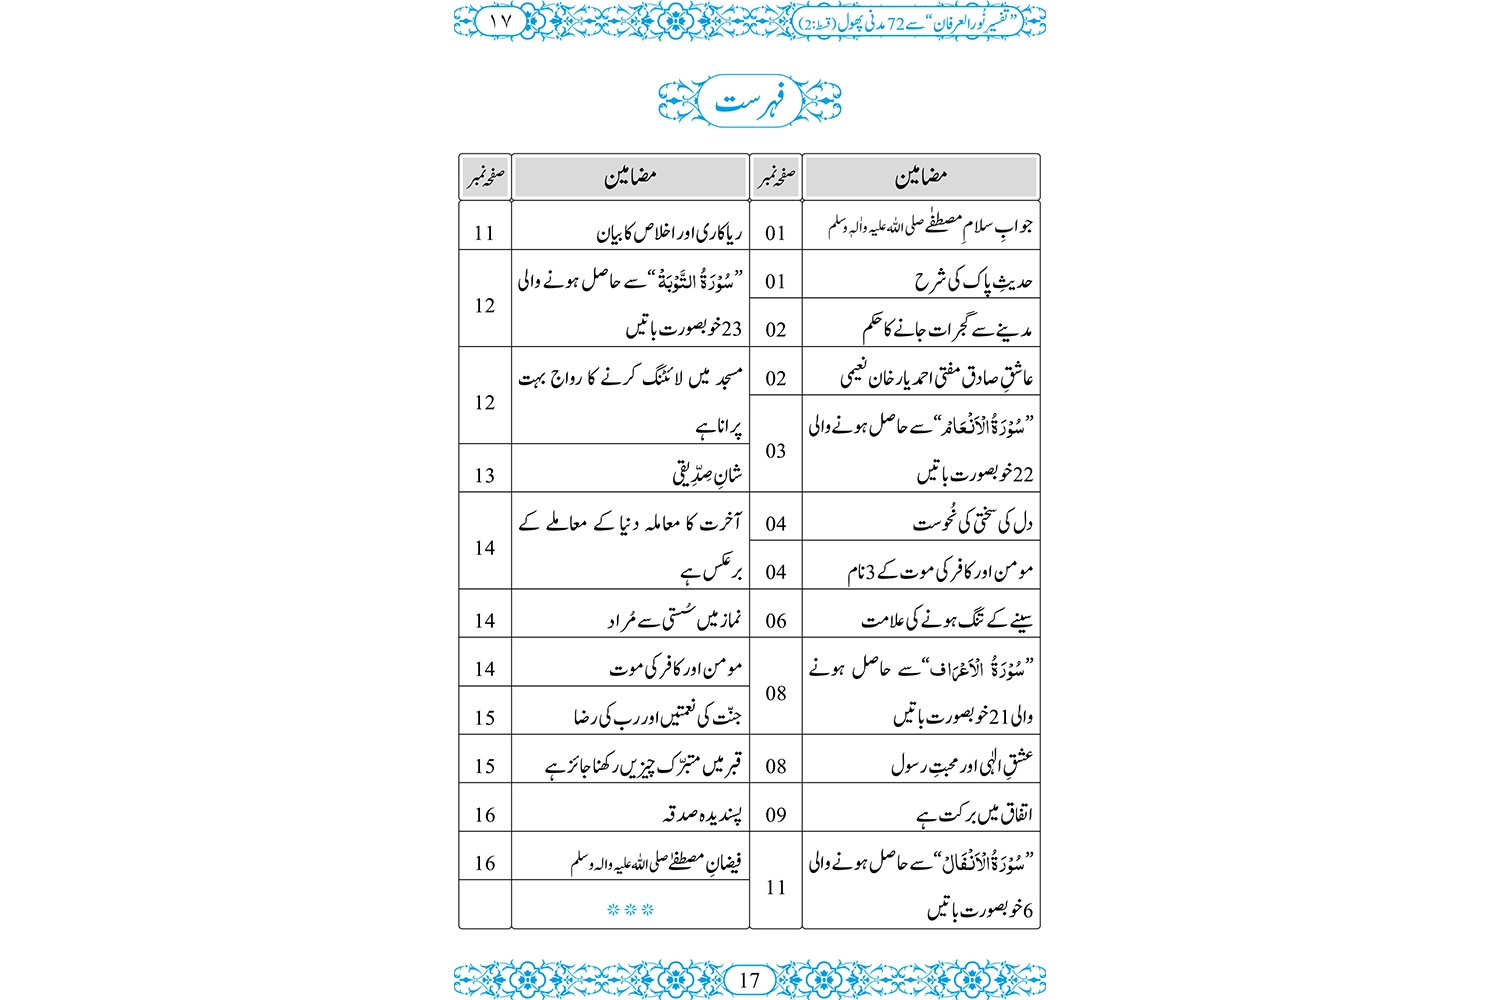 ”تفسیرِ نُورالعرفان“ سے 72 مدنی پھول (قسط:2)
۱۷
فہرست
مضامین صفحہ نمبر
جوابِ سلامِ مصطفےٰ صلی اللہ علیہ واٰلہٖ وسلم 01
حدیثِ پاک کی شرح 01
مدینے سے گجرات جانے کا حکم 02
عاشقِ صادق مفتی احمد یار خان نعیمی 02
”سُوْرَۃُ الْاَنْعَام“ سے حاصل ہونے والی
22 خوبصورت باتیں 03
دل کی سختی کی نُحوست 04
مومن اور کافر کی موت کے 3 نام 04
سینے کے تنگ ہونے کی علامت 06
”سُوْرَۃُ الْاَعْرَاف“ سے حاصل ہونے
والی 21 خوبصورت باتیں 08
عشقِ الٰہی اور محبتِ رسول 08
اتفاق میں برکت ہے 09
”سُوْرَۃُ الْاَنْفَالْ“ سے حاصل ہونے والی
6 خوبصورت باتیں 11
مضامین صفحہ نمبر
ریاکاری اور اخلاص کا بیان 11
”سُوْرَۃُ التَّوْبَۃْ“ سے حاصل ہونے والی
23 خوبصورت باتیں 12
مسجد میں لائٹنگ کرنے کا رواج بہت
پرانا ہے 12
شانِ صِدِّیقی 13
آخرت کا معاملہ دنیا کے معاملے کے
برعکس ہے 14
نماز میں سُستی سے مُراد 14
مومن اور کافر کی موت 14
جنّت کی نعمتیں اور رب کی رضا 15
قبر میں متبرّک چیزیں رکھنا جائز ہے 15
پسندیدہ صدقہ 16
فیضانِ مصطفےٰ صلی اللہ علیہ والہ وسلم 16
17